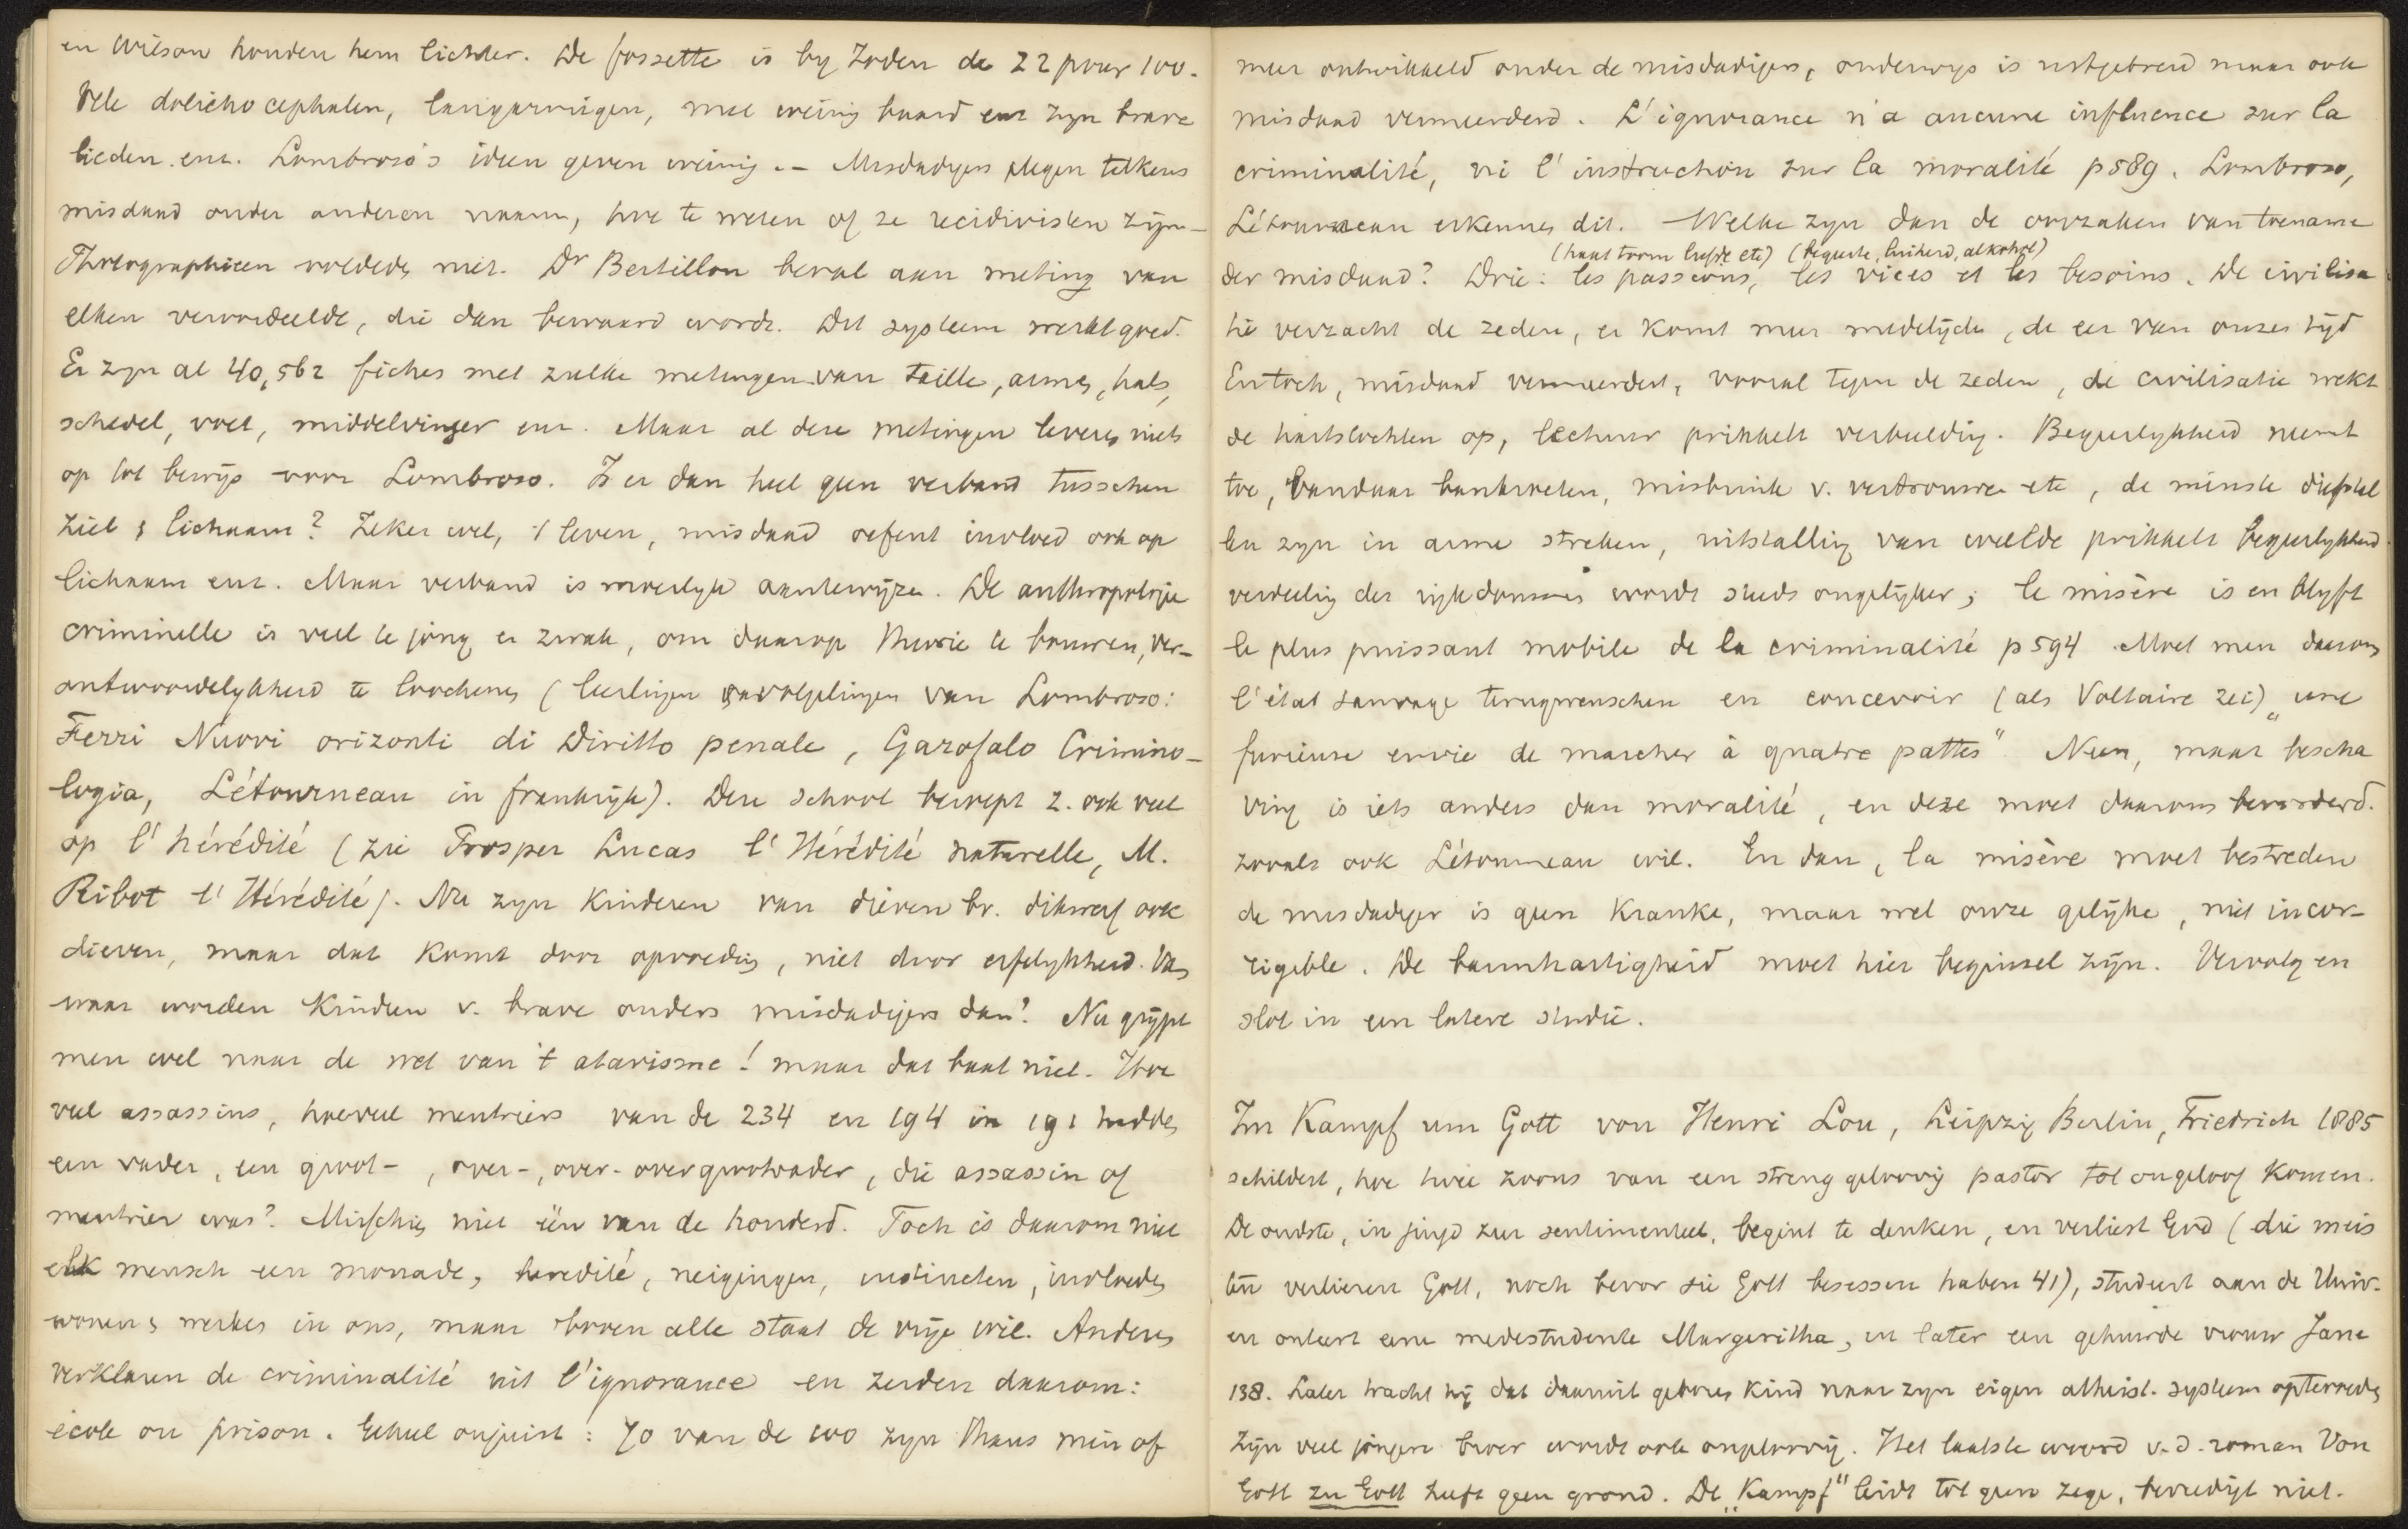 en Wilson houden hem lichter. De fossette is by Joden de 22 pour 100.
Vele dolichocephalen, langarmigen, met weinig baard enz zyn brave
lieden enz. Lombroso's ideen geven weinig. – Misdadigers plegen telkens
misdaad onder anderen naam, hoe te weten of ze recidivisten zijn –
Photographieen voldeden niet. Dr Bertillon beval aan meting van
elken veroordeelde, die dan bewaard wordt. Dit systeem werkt goed.
Er zyn al 40,562 fiches met zulke metingen van taille, armen, hals,
schedel, voet, middelvinger enz. Maar al deze metingen leveren niets
op tot bewijs voor Lombroso. Is er dan heel geen verband tusschen
ziel & lichaam? Zeker wel, 't leven, misdaad oefent invloed ook op
lichaam enz. Maar verband is moeilyk aantewijzen. De anthropologie
criminelle is veel te jong en zwak, om daarop theorie te bouwen, ver-
antwoordelykheid te loochenen (leerlingen navolgelingen van Lombroso:
Ferri Nuovi orizonti di Diritto penale, Garofalo Crimino-
logia, Létourneau in frankrijk). Deze school beroept z. ook veel
op l'hérédité (zie Prosper Lucas l'Hérédité naturelle, M.
Ribot l'Hérédité). Nu zyn kinderen van dieven bv. dikwerf ook
dieven, maar dat komt door opvoeding, niet door erfelykheid. Van
waar worden kinderen v. brave ouders misdadigers dan? Nu grypt
men wel naar de wet van 't atavisme! maar dat baat niet. Hoe
veel assassins, hoeveel meutriers van de 234 en 194 in 191 hadden
een vader, een groot-, over-, over-overgrootvader, die assassin of
meutrier was? Misschien niet één van de honderd. Toch is daarom niet
elk mensch een monade, heredité, neigingen, instincten, invloeden
wonen & werken in ons, maar boven alle staat de vrije wil. Anderen
verklaren de criminalité uit l'ignorance en zeiden daarom:
école ou prison. Geheel onjuist: 70 van de 100 zyn thans min of
meer ontwikkeld onder de misdadigers, onderwys is uitgebreid maar ook
misdaad vermeerderd. L'ignorance n'a aucune influence sur la
criminalité, ni l'instruction sur la moralité p 589. Lombroso,
Létourneau erkennen dit. – Welke zyn dan de oorzaken van toename
(haat toorn liefde etc) (begeerte, luiheid, alkohol)
der misdaad? Drie: les passions, les vices et les besoins. De civilisa
tie verzacht de zeden, er komt meer medelijden, de eer van onzen tijd
En toch, misdaad vermeerdert, vooral tegen de zeden, de civilisatie wekt
de hartstochten op, lectuur prikkelt verbeelding. Begeerlykheid neemt
toe, vandaar bankroeten, misbruik v. vertrouwen etc, de minste diefstal
len zyn in arme streken, uitstalling van weelde prikkelt begeerlykheid
verdeeling der rijkdommen wordt steeds ongelijker; la misère is en blyft
le plus puissant mobile de la criminalité p 594. Moet men daarom
l'état sauvage terugwenschen en concevoir (als Voltaire zei) „une
furieuse envie de marcher à quatre pattes" Neen, maar bescha
ving is iets anders dan moralité, en deze moet daarom bevorderd.
zooals ook Létourneau wil. En dan, la misère moet bestreden
de misdadiger is geen kranke, maar wel onze gelijke, niet incor-
rigible. De barmhartigheid moet hier beginsel zijn. Vervolg en
slot in een latere studie.
Im Kampf um Gott von Henri Lou, Leipzig Berlin, Friedrich 1885
schildert, hoe twee zoons van een streng geloovig pastor tot ongeloof komen.
De oudste, in jeugd zeer sentimenteel, begint te denken, en verliest God (die meis
ten verlieren Gott, noch bevor sie Gott besessen haben 41), studeert aan de Univ.
en onteert eene medestudente Margeritha, en later een gehuwde vrouw Jane
138. Later tracht hij dat daaruit geboren kind naar zyn eigen atheist. systeem optevoeden
Zijn veel jongere broer wordt ook ongeloovig. Het laatste woord v. d. roman Von
Gott zu Gott heeft geen grond. De „Kampf" leidt tot geen zege, bevredigt niet.